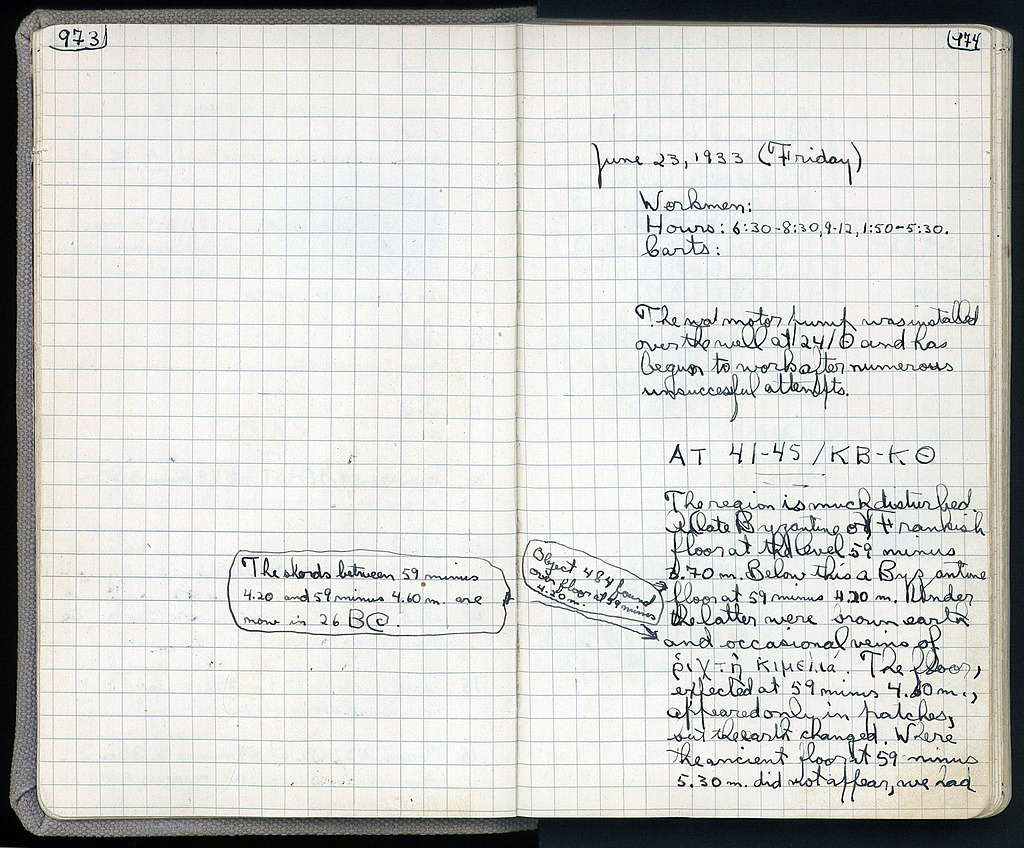 973
974
June 23, 1933 (Friday)
Workmen:
Hours: 6:30-8:30, 9-12, 1:50-5:30.
Carts:
The motor pump was installed
over the well at 24/Θ and has
begun to work after numerous
unsuccessful attempts.
AT 41-45/ΚΒ-ΚΘ
The region is much disturbed.
A late Byzantine or Frankish
floor at the level 59 minus
3.70 m. Below this a Byzantine
floor at 59 minus 4.20 m. Under
the latter were brown earth
and occasional veins of
κιμελιά. The floor,
expected at 59 minus 4.60 m.,
appeared only in patches,
but the earth changed. Where
the ancient floor at 59 minus
5.30 m. did not appear, we had
The sherds between 59 minus
4.20 and 59 minus 4.60 m. are
now in 26 B
Object 484 found
over floor at 59 minus
4.20 m.